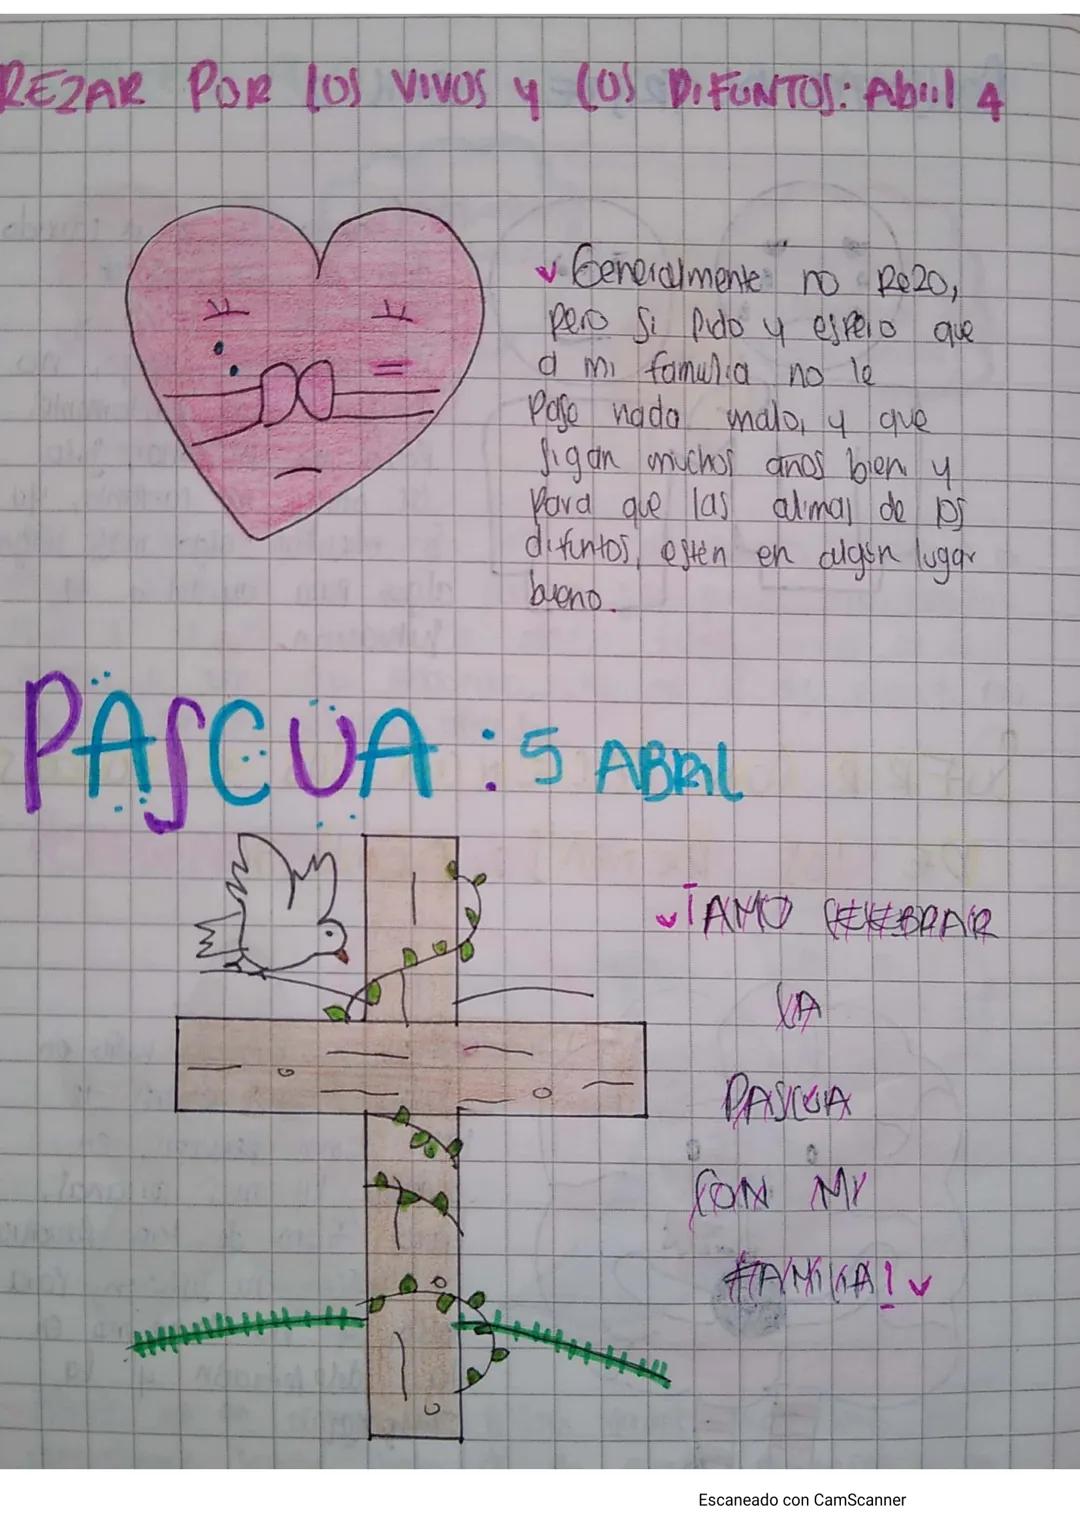 REZAR POR LOS VIVOS y LOS DIFUNTOS: Abril 4
Generalmente no Rezo,
pero si pido y espero que
a mi familia no le
pase nada malo, y que
sigan muchos años bien y
para que las almas de los
difuntos, estén en algún lugar
bueno.
PASCUA: 5 ABRIL
¡AMO CELEBRAR
LA
PASCUA
CON MI
FAMILIA!
Escaneado con CamScanner